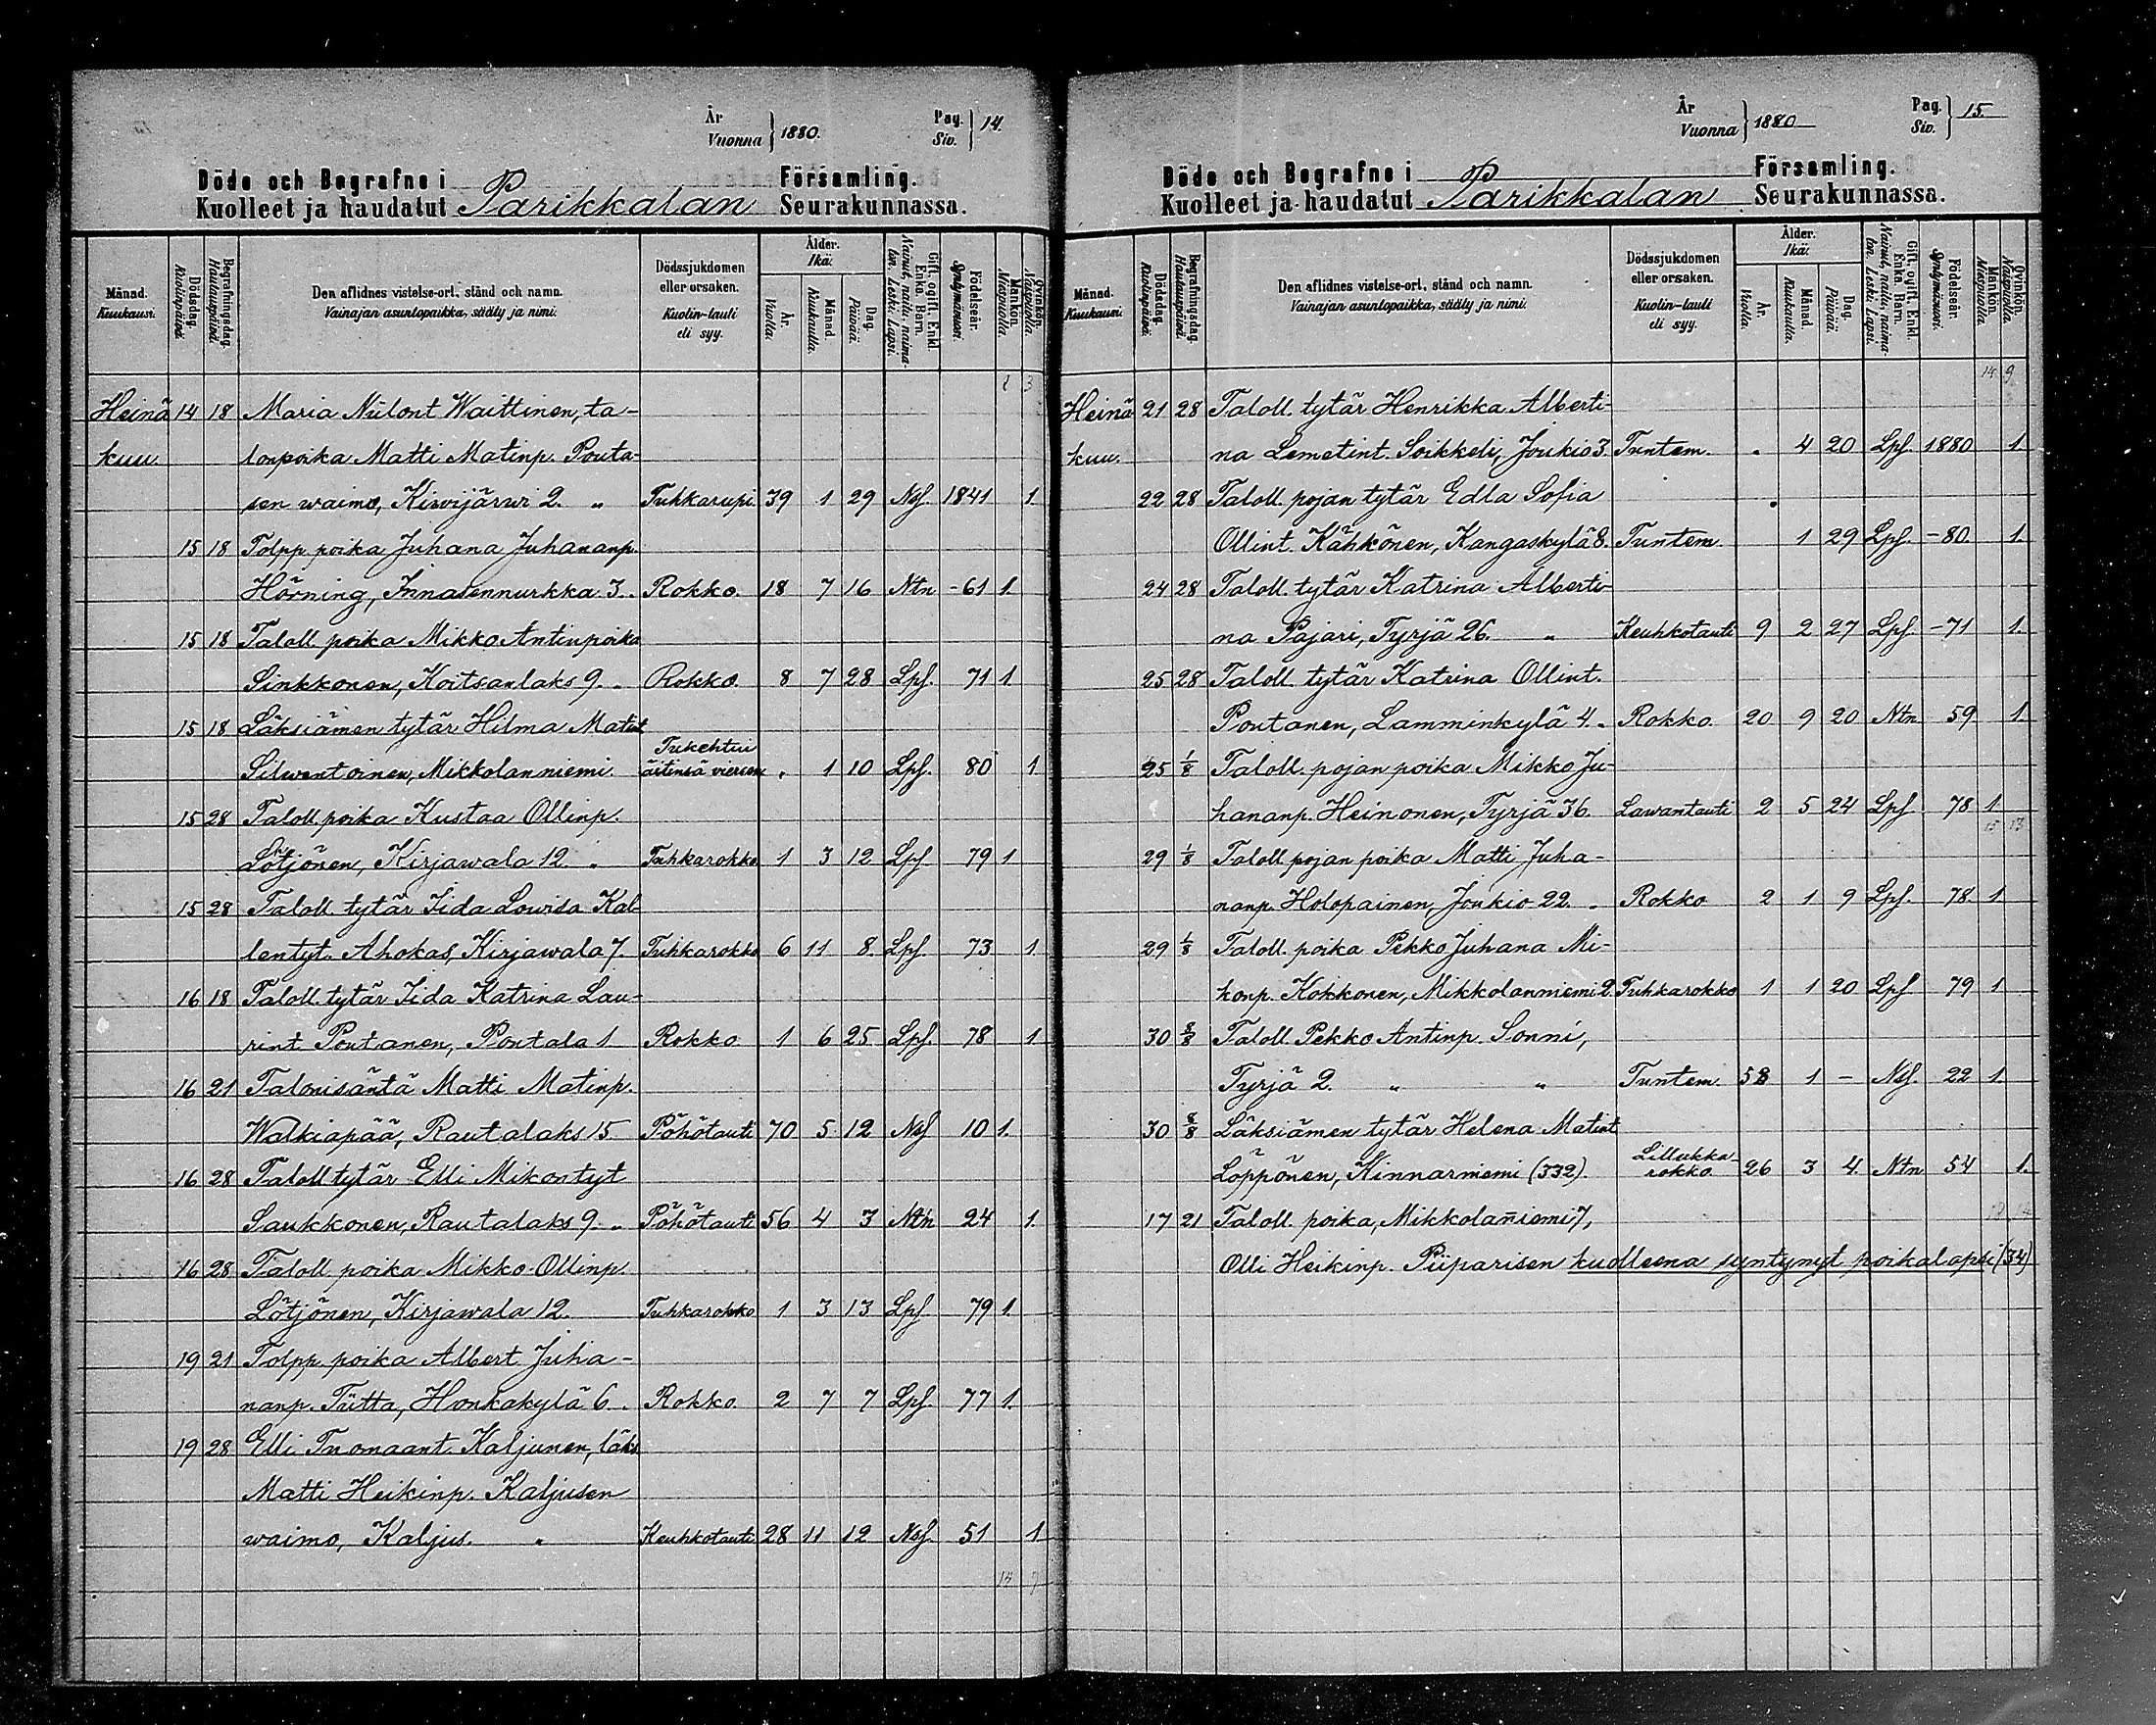 År
Vuonna } 1880.
Pag.
Siv. } 14.
Döde och Begrafne i Församling.
Kuolleet ja haudatut Parikkalan Seurakunnassa.
Månad. Kuukausi.
Dödsdag. Kuolinpäivä.
Begrafningsdag. Hautauspäivä.
Den aflidnes vistelse-ort, stånd och namn.
Vainajan asuntopaikka, sääty ja nimi.
Dödssjukdomen eller orsaken.
Kuolin-tauti eli syy.
Ålder. Ikä.
År. Vuotta.
Månad. Kuukautta.
Dag. Päivää.
Gift, ogift, Enkl. Enka. Barn.
Nainut, naitu, naimaton. Leski. Lapsi.
Födelseår. Syntymävuosi.
Mankön. Miespuolia.
Qvinkön. Naispuolia.
Heinä 14 18 Maria Niilont Waittinen, ta-
kuu. lonpoika Matti Matinp. Pouta-
sen waimo, Kirvijärwi 2. " Tuhkarupi. 39 1 29 Nsf. 1841 1.
15 18 Tolpp. poika Juhana Juhananp.
Hörning, Innasennurkka 3. Rokko. 18 7 16 Ntn -61 1.
15 18 Taloll. poika Mikko Antinpoika
Sinkkonen, Koitsanlaks 9. " Rokko. 8 7 28 Lps. 71 1.
15 18 Läksiämen tytär Hilma Matint
Silwentoinen, Mikkolanniemi. Tukehtui äitinsä viereen " 1 10 Lps. 80 1
15 28 Taloll poika Kustaa Ollinp.
Lötjönen, Kirjawala 12 " Tuhkarokko 1 3 12 Lps. 79 1
15 28 Taloll. tytär Iida Lowisa Kal
lentyt. Ahokas, Kirjawala 7. Tuhkarokko 6 11 8. Lps. 73 1.
16 18 Taloll. tytär Iida Katrina Lau-
rint Poutanen, Poutala 1 Rokko 1 6 25 Lps. 78 1
16 21 Talonisäntä Matti Matinp.
Walkiapää, Rautalaks 15 Pöhötauti 70 5 12 Nsf 10 1.
16 28 Taloll tytär Elli Mikontyt
Saukkonen, Rautalaks 9. " Pöhötauti 56 4 3 Ntn 24 1.
16 28 Taloll. poika Mikko Ollinp.
Lötjönen, Kirjawala 12. Tuhkarokko 1 3 13 Lps. 79 1.
19 21 Tolpp. poika Albert Juha-
nanp. Tiitta, Honkakylä 6. Rokko 2 7 7 Lps. 77 1.
19 28 Elli Tuomaant. Kaljunen, läks
Matti Heikinp. Kaljusen
waimo, Kaljus. " Keuhkotauti 28 11 12 Nsf. 51 1
År
Vuonna } 1880
Pag.
Siv. } 15.
Döde och Begrafne i Församling.
Kuolleet ja haudatut Parikkalan Seurakunnassa.
Månad. Kuukausi.
Dödsdag. Kuolinpäivä.
Begrafningsdag. Hautauspäivä.
Den aflidnes vistelse-ort, stånd och namn.
Vainajan asuntopaikka, sääty ja nimi.
Dödssjukdomen eller orsaken.
Kuolin-tauti eli syy.
Ålder. Ikä.
År. Vuotta.
Månad. Kuukautta.
Dag. Päivää.
Gift, ogift, Enkl. Enka. Barn.
Nainut, naitu, naimaton. Leski. Lapsi.
Födelseår. Syntymävuosi.
Mankön. Miespuolia.
Qvinkön. Naispuolia.
14 9
Heinä 21 28 Taloll. tytär Henrikka Alberti-
kuu. na Lemetint. Soikkeli, Joukio 3 Tuntem. " 4 20 Lps. 1880 1.
22 28 Taloll. pojan tytär Edla Sofia
Ollint. Kähkönen, Kangaskylä 8. Tuntem. 1 29 Lps. -80 1.
24 28 Taloll. tytär Katrina Alberti-
na Pajari, Tyrjä 26. " Keuhkotauti 9 2 27 Lps. -71 1.
25 28 Taloll. tytär Katrina Ollint.
Poutanen, Lamminkylä 4. " Rokko 20 9 20 Ntn 59 1
25 1/8 Taloll. pojan poika Mikko Ju-
hananp. Heinonen, Tyrjä 36. Lawantauti 2 5 24 Lps 78 1
15 13
29 1/8 Taloll. pojan poika Matti Juha-
nanp. Holopainen, Joukio 22. " Rokko 2 1 9 Lps. 78. 1
29 1/8 Taloll. poika Pekko Juhana Mi-
konp. Kokkonen, Mikkolanniemi 2. Tuhkarokko 1 1 20 Lps 79 1
30 8/8 Taloll. Pekko Antinp. Sonni,
Tyrjä 2. " " Tuntem. 58 1 - Nsf. 22 1.
30 8/8 Läksiämen tytär Helena Matint
Löppönen, Kinnarniemi (332). Lillukka-rokko. 26 3 4. Ntn 54 1.
17 21 Taloll. poika, Mikkolan̄iemi 7,
Olli Heikinp. Piiparisen kuolleena syntynyt poikalapsi (34)